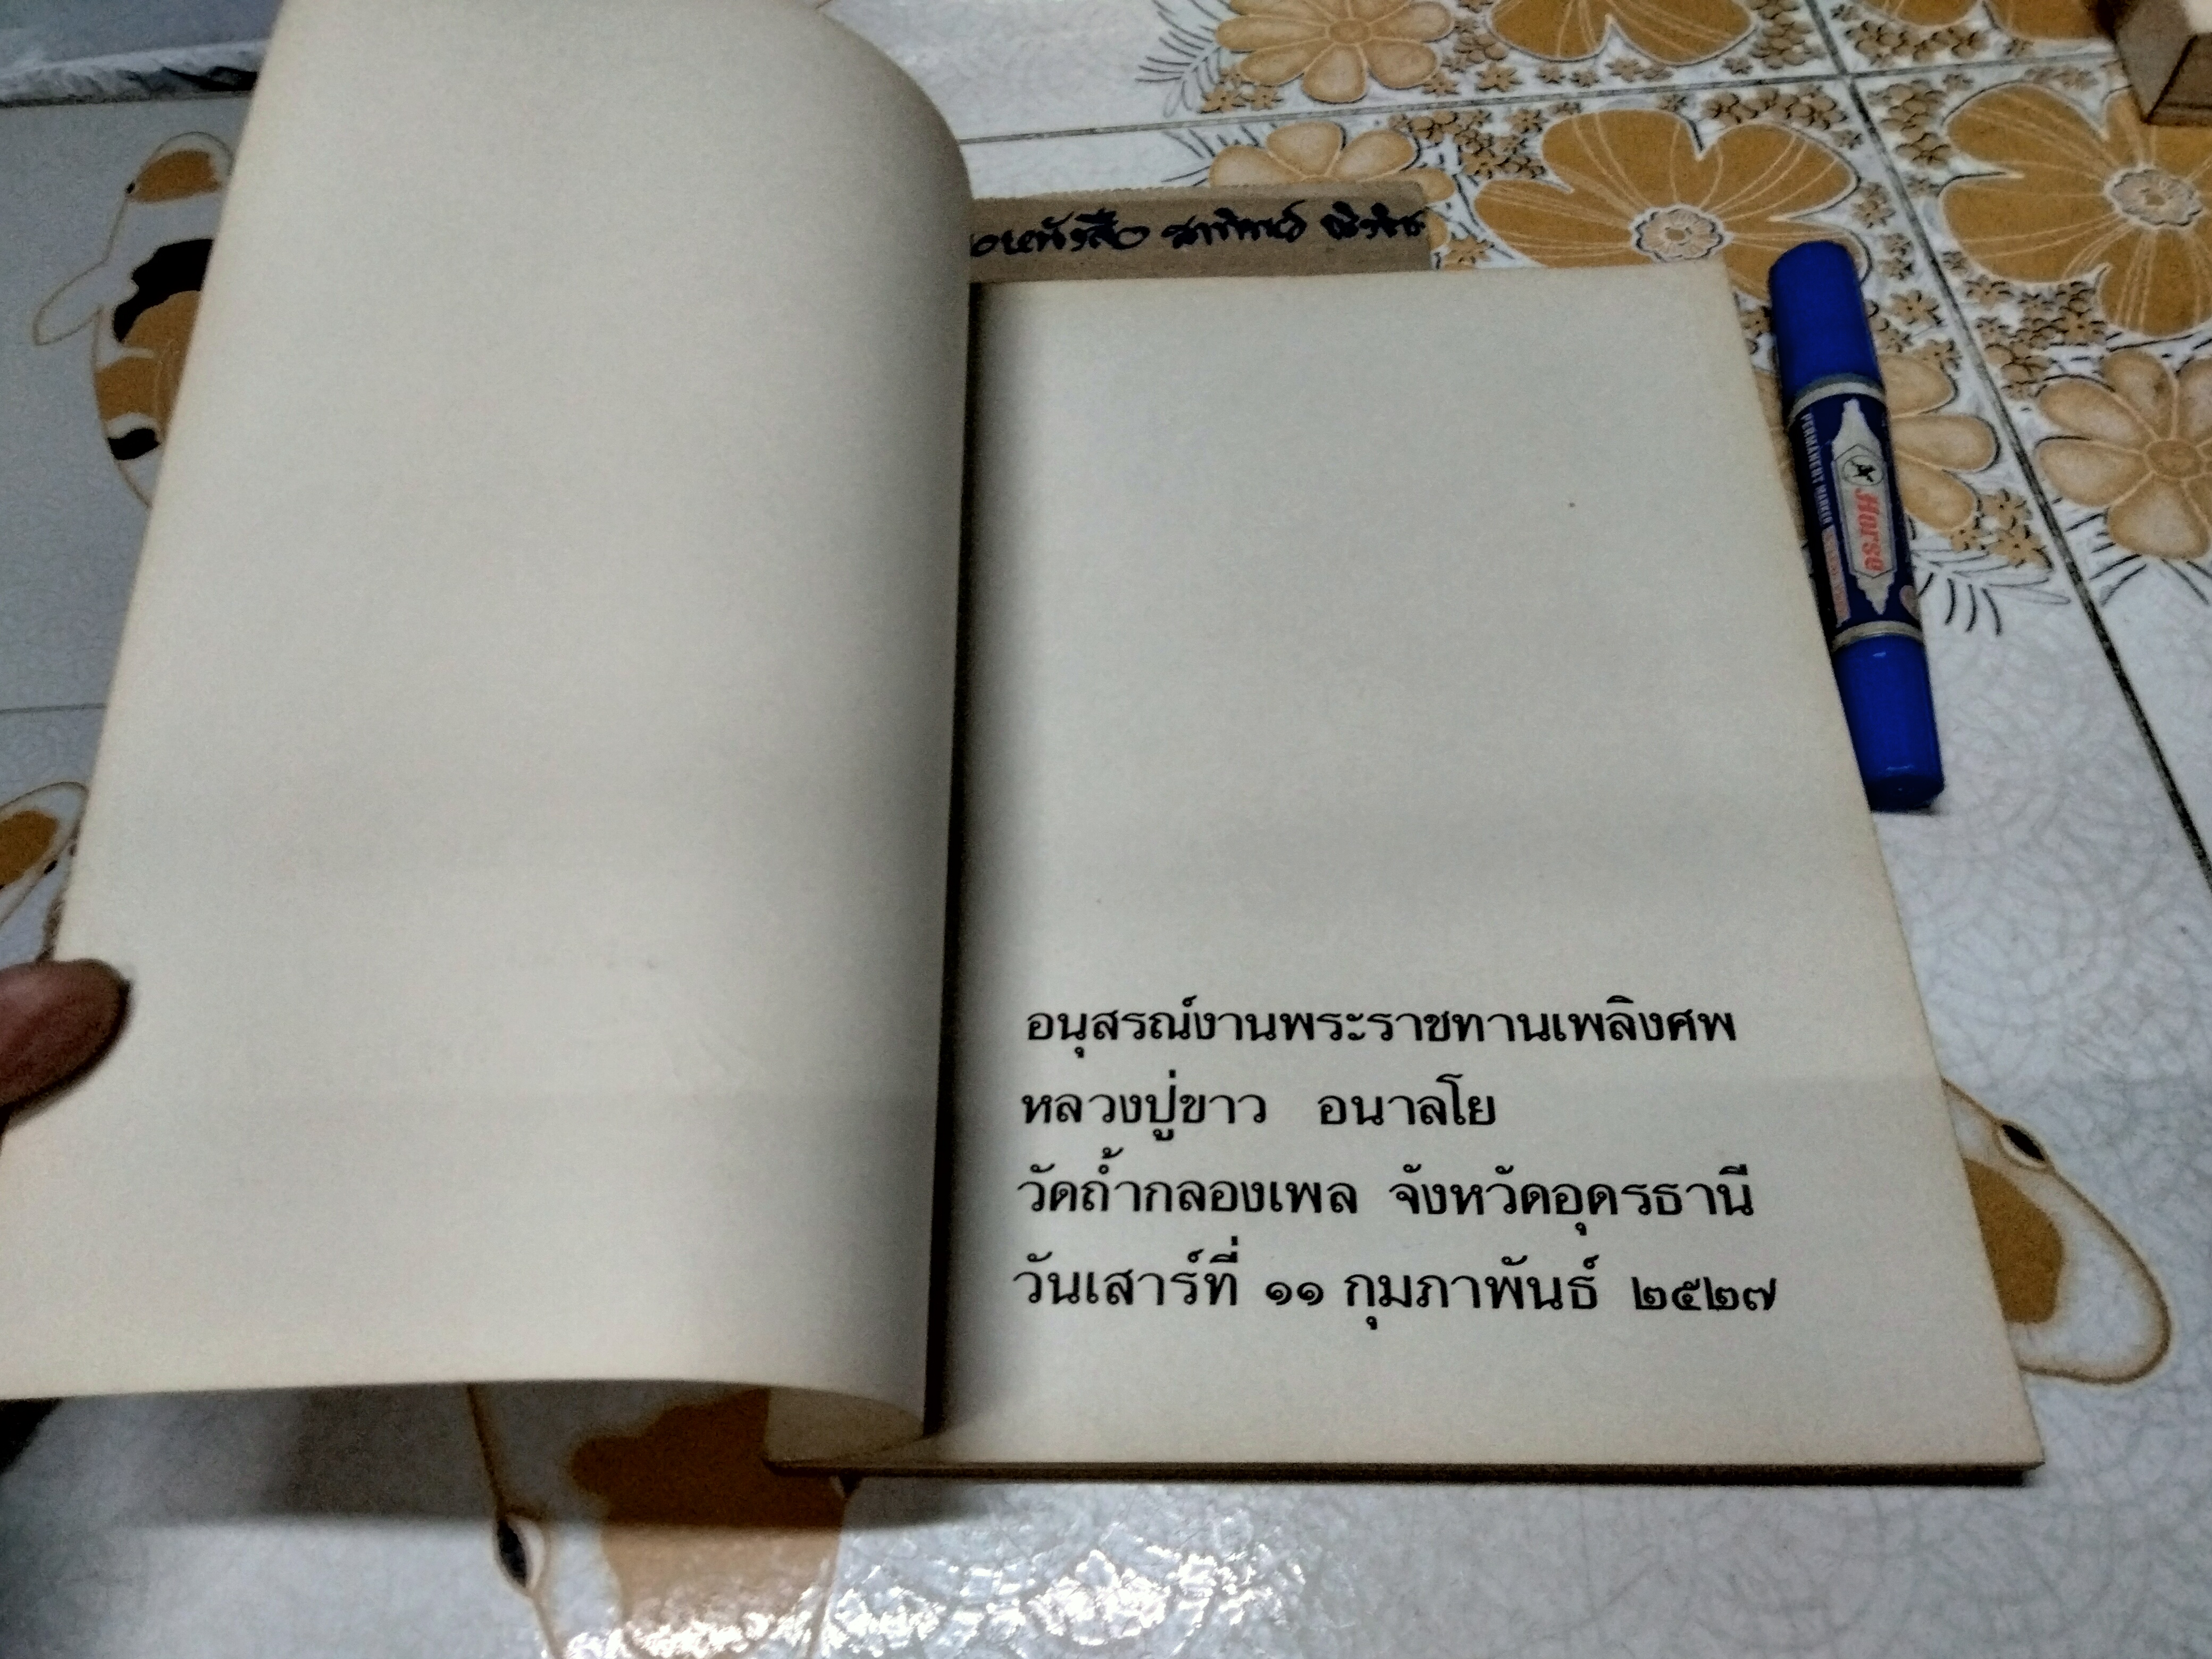 อนุสรณ์งานพระราชทานเพลิงศพ
หลวงปู่ขาว อนาลโย
วัดถ้ำกลองเพล จังหวัดอุดรธานี
วันเสาร์ที่ ๑๑ กุมภาพันธ์ ๒๕๒๗
Horse
PERMANENT MARKER